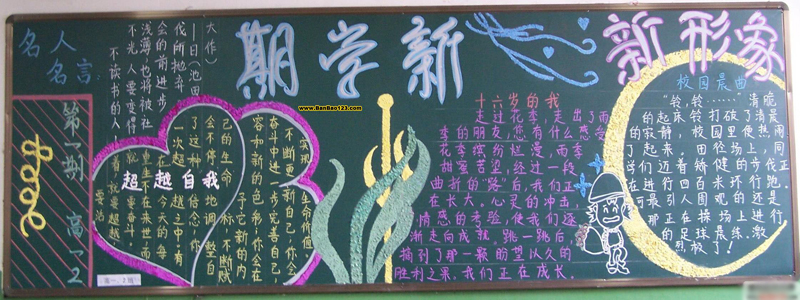 新学期
新形象
名人
名言:
不读书的人
不光 人要变得
浅薄,也将被社
会的前进步
伐所抛弃
——日(池田
大作)
第一期 高一2
超越自我
实现生命价值,
不断更新自己,你会
奋斗中进一步完善自己,
容和新的色彩,你会在
予它新的内
标,不断赋
己的生命
地调整自
会不停
了这种信念,你
一次超越之中,有
在今天的每
重生不在来世,而
要奋斗,
要超越,
十六岁的我
走过花季,走出了雨
季的朋友,您有什么感受
花季缤纷烂漫,而季
甜蜜苦涩,经过一段
曲折的"路"后,我们正
在长大。心灵的冲击,
情感的考验,使我们逐
渐走向成就。跳一跳后,
摘到了那一颗盼望以久的
胜利之果。我们正在成长。
校园晨曲
"铃,铃…… 清脆
的起床铃打破了清晨
的寂静,校园里便热闹
了起来。田径场上,同
学们迈着矫健的步伐正
在进行四百米环行跑。
可最引人围观的还是
那正在操场上进行
的足球晨练,激
烈极了!
高一、2班
www.BanBao123.com